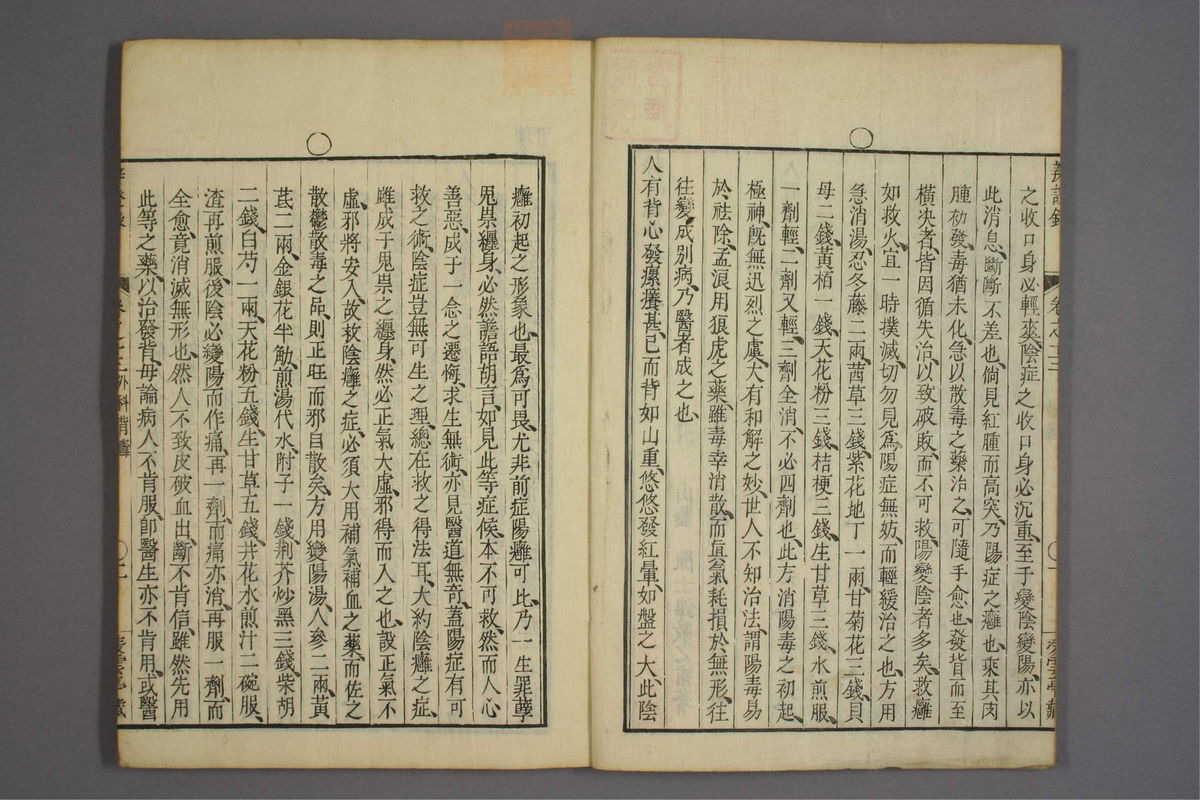 辨證錄 卷之十三
之收口身必輕爽陰症之收口身必沉重至于變陰變陽亦以
此消息斷斷不差也倘見紅腫而高突乃陽症之癰也乘其肉
腫初發毒猶未化急以散毒之藥治之可隨手愈也發背而至
橫決者皆因循失治以致破敗而不可救陽變陰者多矣救癰
如救火宜一時撲滅切勿見爲陽症無妨而輕緩治之也方用
急消湯忍冬藤二兩茜草三錢紫花地丁一兩甘菊花三錢貝
母二錢黃栢一錢天花粉三錢桔梗三錢生甘草三錢水煎服
一劑輕二劑又輕三劑全消不必四劑也此方消陽毒之初起
極神旣無迅烈之虞大有和解之妙世人不知治法謂陽毒易
於祛除孟浪用狼虎之藥雖毒幸消散而眞氣耗損於無形往
往變成别病乃醫者成之也
人有背心發瘰癢甚已而背如山重悠悠發紅暈如盤之大此陰
癰初起之形象也最爲可畏尤非前症陽癰可比乃一生罪孽
鬼祟纒身必然譫語胡言如見此等症候本不可救然而人心
善惡成于一念之遷悔求生無術亦見醫道無奇蓋陽症有可
救之術陰症豈無可生之理總在救之得法耳大約陰癰之症
雖成于鬼祟之纒身然必正氣大虛邪得而入之也設正氣不
虛邪將安入故救陰癰之症必須大用補氣補血之藥而佐之
散鬱散毒之品則正旺而邪自散矣方用變陽湯人參二兩黃
芪二兩金銀花半觔煎湯代水附子一錢荆芥炒黑三錢柴胡
二錢白芍一兩天花粉五錢生甘草五錢井花水煎汁二碗服
渣再煎服後陰必變陽而作痛再一劑而痛亦消再服一劑而
全愈竟消滅無形也然人不致皮破血出斷不肯信雖然先用
此等之藥以治發背毋論病人不肯服卽醫生亦不肯用或醫